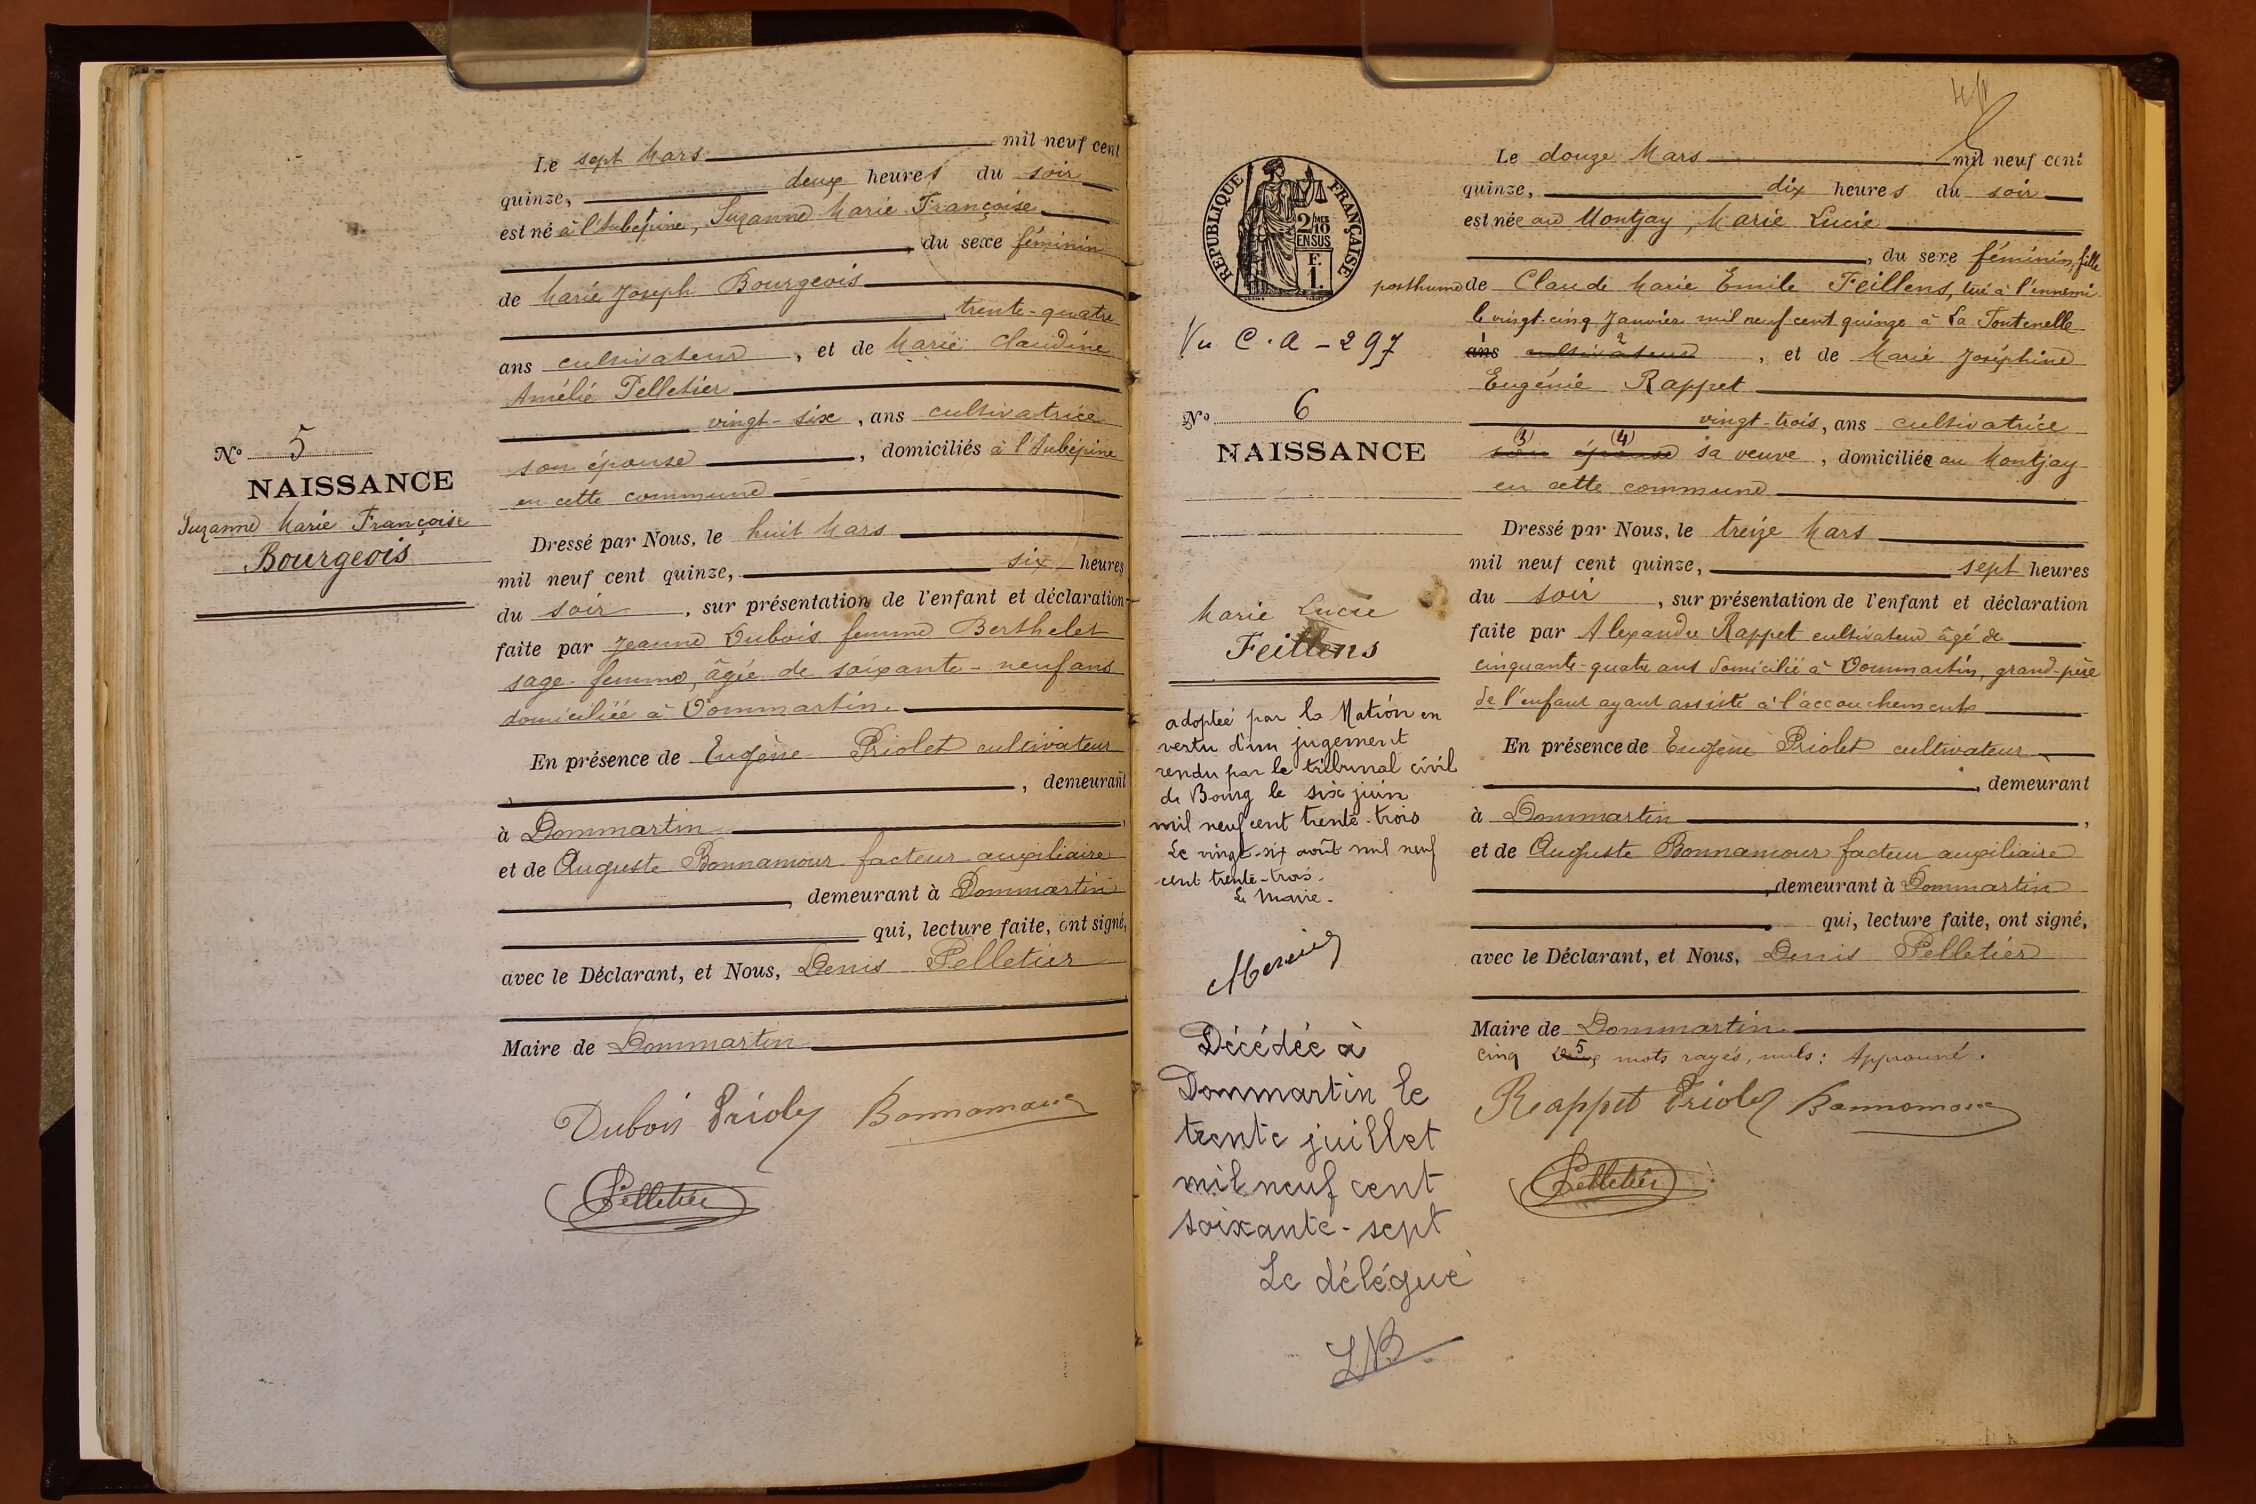 Le sept Mars mil neuf cent
quinze, deux heures du soir
est né à l'Aubépine, Suzanne Marie Françoise
, du sexe féminin
de Marie Joseph Bourgeois
, trente-quatre
ans cultivateur , et de Marie Claudine
Amélie Pelletier
vingt-six , ans cultivatrice
son épouse , domiciliés à l'Aubépine
en cette commune
Dressé par Nous, le huit Mars
mil neuf cent quinze, six heures
du soir , sur présentation de l'enfant et déclaration
faite par Jeanne Dubois femme Berthelet
sage-femme, âgée de soixante-neuf ans
domiciliée à Dommartin.
En présence de Eugène Priolet cultivateur
, demeurant
à Dommartin ,
et de Auguste Bonnamour facteur auxiliaire
, demeurant à Dommartin
qui, lecture faite, ont signé,
avec le Déclarant, et Nous, Denis Pelletier
Maire de Dommartin
Dubois Priolet Bonnamour
Pelletier
No 5
NAISSANCE
Suzanne Marie Françoise
Bourgeois
RÉPUBLIQUE FRANÇAISE
2/10 MES
EN SUS
F.
1.
Vu C.A - 297
No 6
NAISSANCE
Marie Lucie
Feillens
adoptée par la Nation en
vertu d'un jugement
rendu par le tribunal civil
de Bourg le six juin
mil neuf cent trente-trois
Le vingt-six août mil neuf
cent trente-trois.
Le Maire.
Décédée à
Dommartin le
trente juillet
mil neuf cent
soixante-sept
Le délégué
Le douze Mars mil neuf cent
quinze, dix heures du soir
est née au Montjay, Marie Lucie
, du sexe féminin, fille
posthume de Claude Marie Emile Feillens, tué à l'ennemi
le vingt-cinq Janvier mil neuf cent quinze à La Fontenelle
ans cultivateur 2 , et de Marie Joséphine
Eugénie Rappet
vingt-trois, ans cultivatrice
son (3) épouse (4) sa veuve , domiciliée au Montjay
en cette commune
Dressé par Nous, le treize Mars
mil neuf cent quinze, sept heures
du soir , sur présentation de l'enfant et déclaration
faite par Alexandre Rappet cultivateur âgé de
cinquante-quatre ans domicilié à Dommartin, grand-père
de l'enfant ayant assisté à l'accouchement
En présence de Eugène Priolet cultivateur
, demeurant
à Dommartin ,
et de Auguste Bonnamour facteur auxiliaire
, demeurant à Dommartin
qui, lecture faite, ont signé,
avec le Déclarant, et Nous, Denis Pelletier
Maire de Dommartin
cinq 5 mots rayés, nuls : Approuvé.
Rappet Priolet Bonnamour
Pelletier